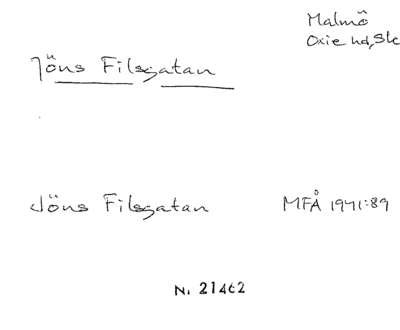 Malmö
Oxie hd, Sk
Jöns Filsgatan
Jöns Filsgatan MFÅ 1941:89
N. 21462